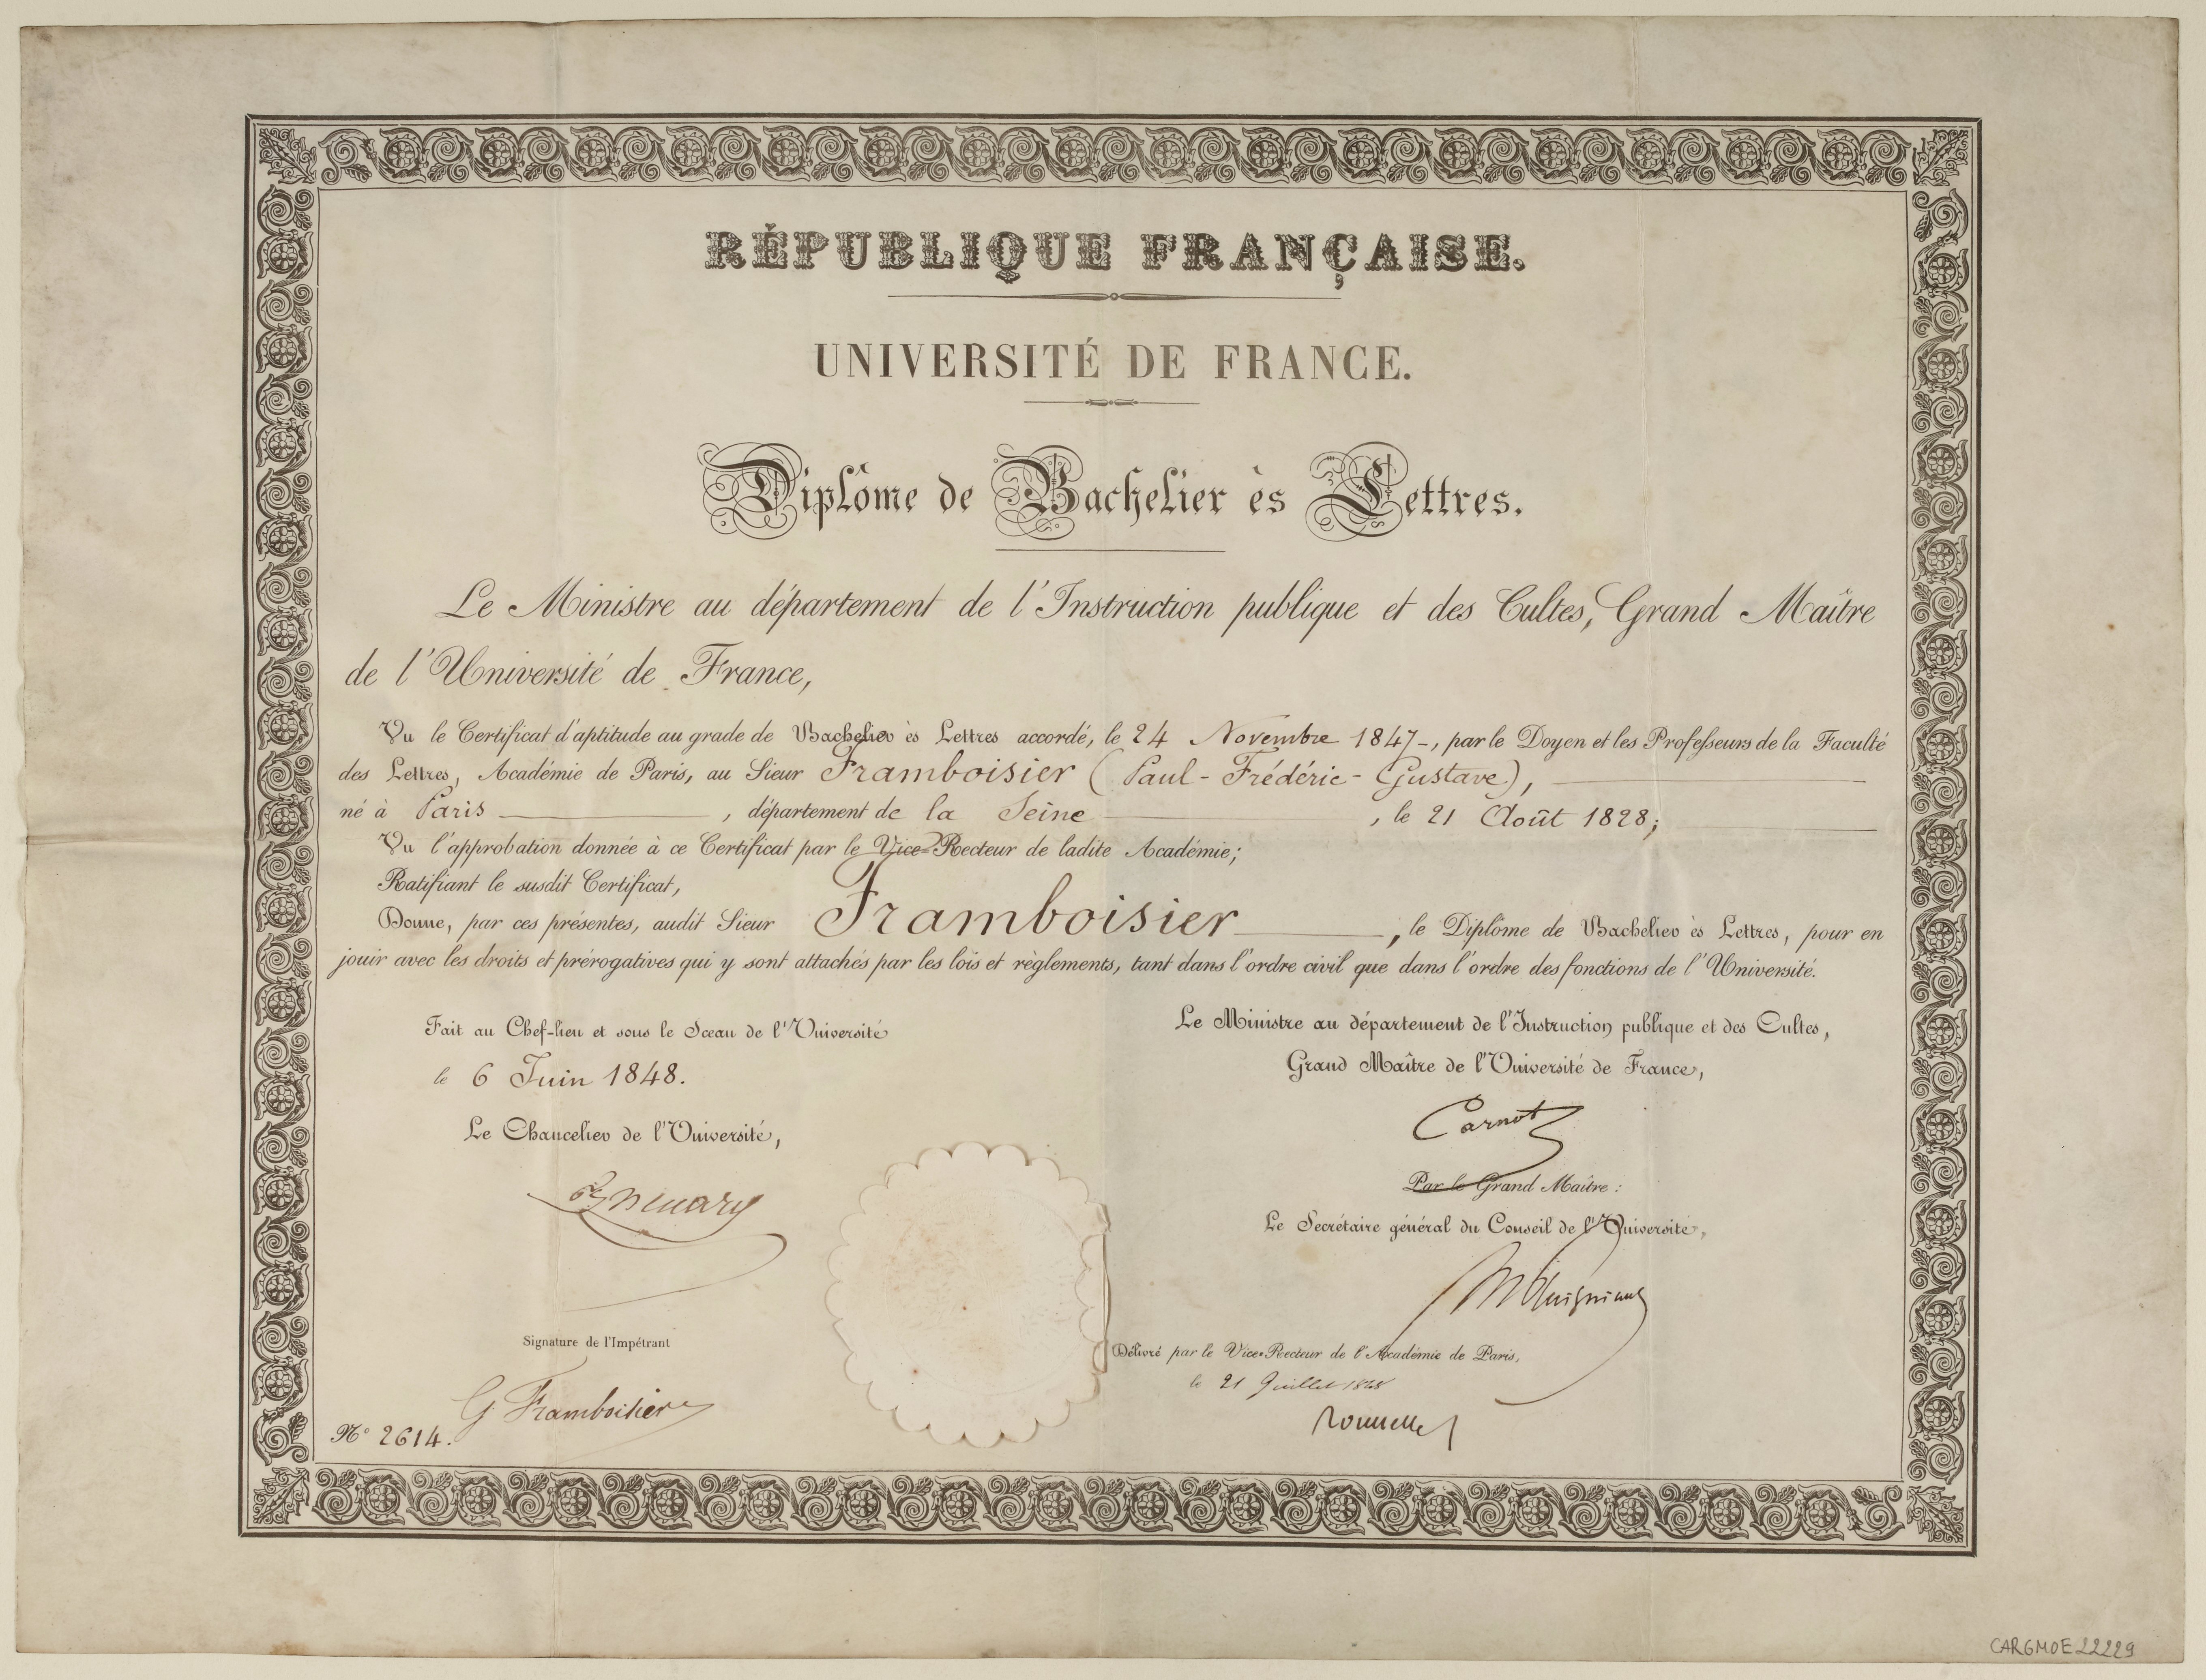 RÉPUBLIQUE FRANÇAISE.
UNIVERSITÉ DE FRANCE.
Diplôme de Bachelier ès Lettres.
Le Ministre au département de l'Instruction publique et des Cultes, Grand Maître
de l'Université de France,
Vu le Certificat d'aptitude au grade de Bachelier ès Lettres accordé, le 24 Novembre 1847-, par le Doyen et les Professeurs de la Faculté
des Lettres, Académie de Paris, au Sieur Framboisier (Paul-Frédéric-Gustave),
né à Paris, département de la Seine, le 21 Août 1828;
Vu l'approbation donnée à ce Certificat par le Vice-Recteur de ladite Académie;
Ratifiant le susdit Certificat,
Donne, par ces présentes, audit Sieur Framboisier, le Diplôme de Bachelier ès Lettres, pour en
jouir avec les droits et prérogatives qui y sont attachés par les lois et règlements, tant dans l'ordre civil que dans l'ordre des fonctions de l'Université.
Fait au Chef-lieu et sous le Sceau de l'Université
le 6 Juin 1848.
Le Chancelier de l'Université,
Signature de l'Impétrant
G Framboisier
N° 2614.
Le Ministre au département de l'Instruction publique et des Cultes,
Grand Maître de l'Université de France,
Carnot
Par le Grand Maître :
Le Secrétaire général du Conseil de l'Université,
Délivré par le Vice-Recteur de l'Académie de Paris,
le 21 Juillet 1848
CARGMOE22229